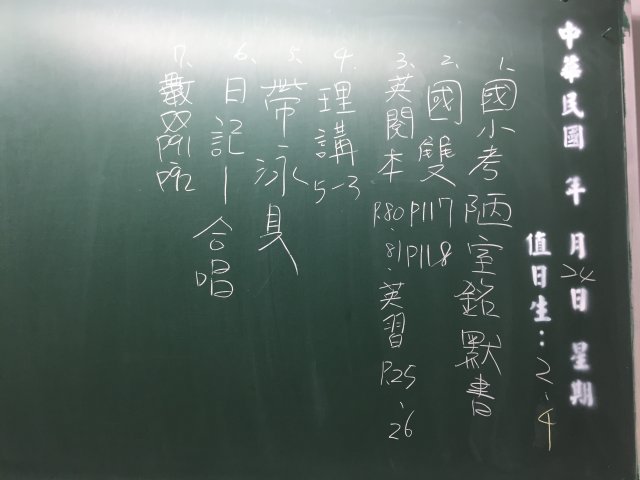 中華民國 年 月24日 星期
值日生：2、4
1.國小考陋室銘默書
2、國雙P117 P118
3、英閱本P.80、81、英習P.25、26
4、理講5-3
5、帶泳具
6、日記—合唱
7、數双